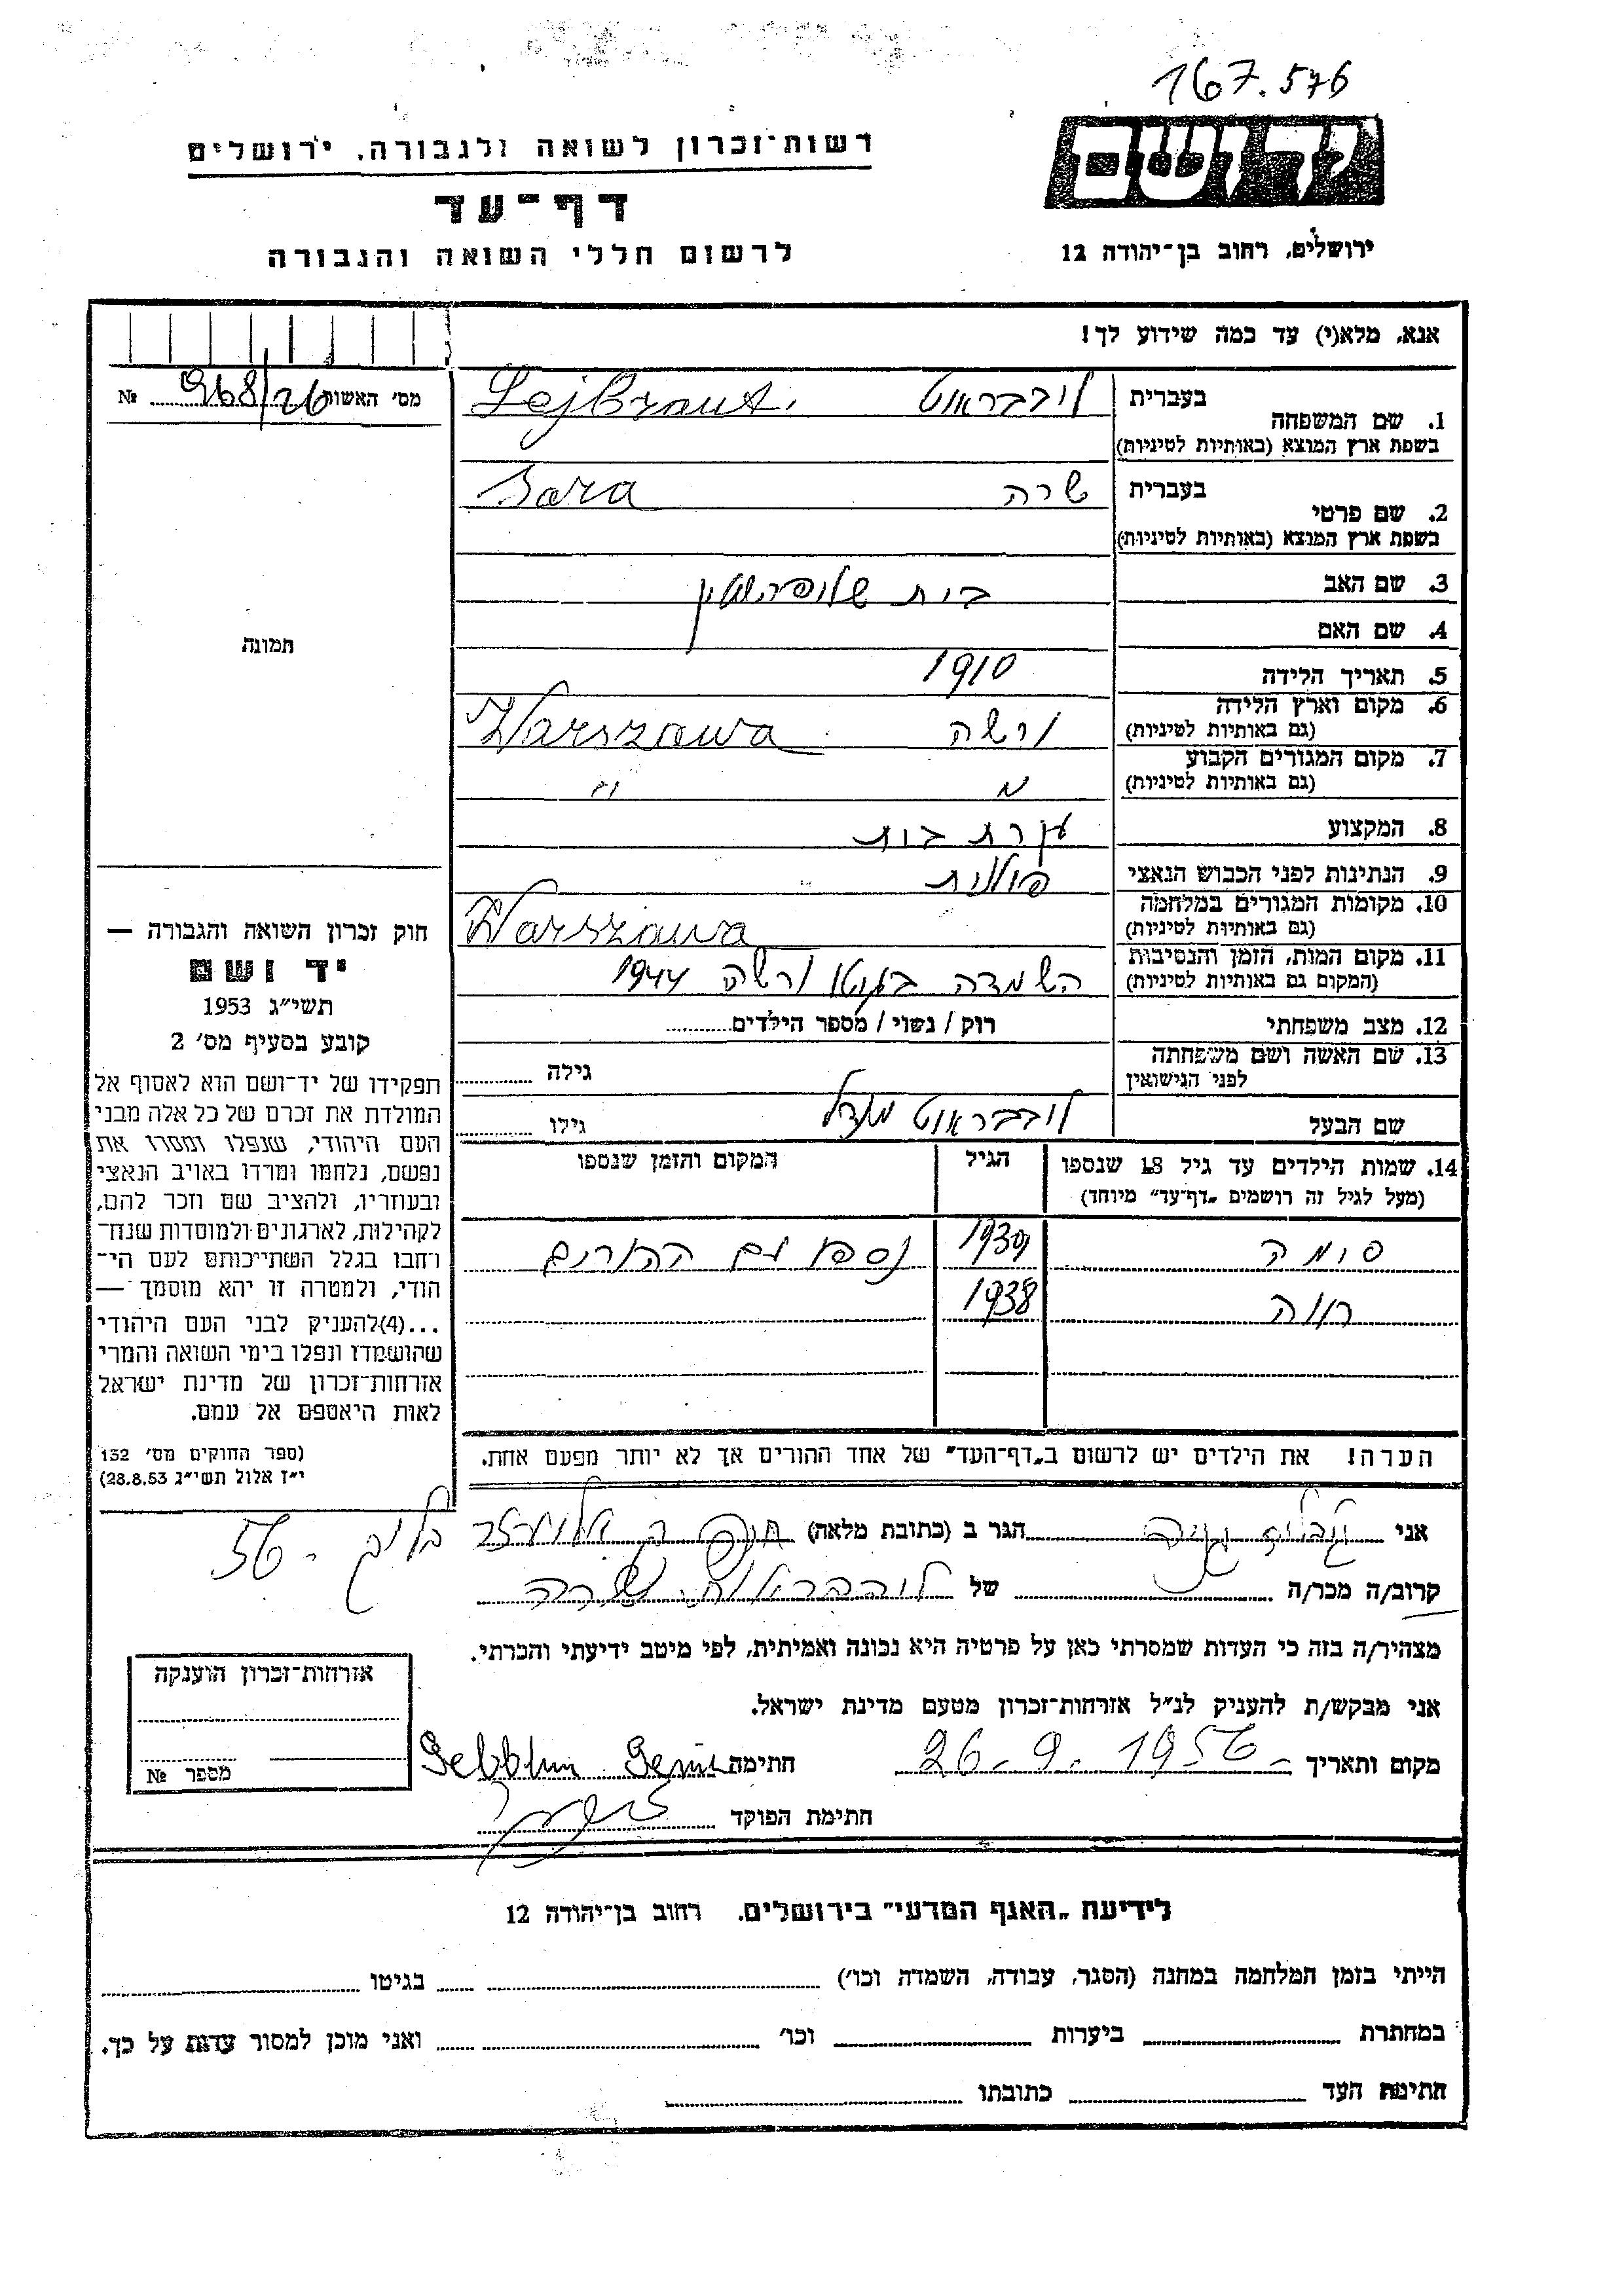 167.576
יד ושם
ירושלים, רחוב בן־יהודה 12
רשות־זכרון לשואה ולגבורה, ירושלים
דף־עד
לרשום חללי השואה והגבורה
אנא, מלא(י) עד כמה שידוע לך!
מס' האשות 968/26 №
תמונה
1. שם המשפחה בעברית לייבבראוט Lejbraut.
בשפת ארץ המוצא (באותיות לטיניות)
2. שם פרטי בעברית שרה Sara
בשפת ארץ המוצא (באותיות לטיניות)
3. שם האב בית
4. שם האם
5. תאריך הלידה 1910
6. מקום וארץ הלידה ורשה Warszawa
(גם באותיות לטיניות)
7. מקום המגורים הקבוע
(גם באותיות לטיניות)
8. המקצוע עקרת בית
9. הנתינות לפני הכבוש הנאצי פולנית
10. מקומות המגורים במלחמה Warszawa
(גם באותיות לטיניות)
11. מקום המות, הזמן והנסיבות השמדה בגטו ורשה 1944
(המקום גם באותיות לטיניות)
12. מצב משפחתי רוק / נשוי / מספר הילדים
13. שם האשה ושם משפחתה
לפני הנישואין גילה
שם הבעל לייבבראוט מנדל גילו
14. שמות הילדים עד גיל 18 שנספו הגיל המקום והזמן שנספו
(מעל לגיל זה רושמים "דף־עד" מיוחד)
פומה 1939 נספו עם ההורים
חוה 1938
הערה! את הילדים יש לרשום ב"דף־העד" של אחד ההורים אך לא יותר מפעם אחת.
חוק זכרון השואה והגבורה —
יד ושם
תשי"ג 1953
קובע בסעיף מס' 2
תפקידו של יד־ושם הוא לאסוף אל
המולדת את זכרם של כל אלה מבני
העם היהודי, שנפלו ומסרו את
נפשם, נלחמו ומרדו באויב הנאצי
ובעוזריו, ולהציב שם וזכר להם,
לקהילות, לארגונים ולמוסדות שנח־
רחבו בגלל השתייכותם לעם הי־
הודי, ולמטרה זו יהא מוסמך —
...(4)להעניק לבני העם היהודי
שהושמדו ונפלו בימי השואה והמרי
אזרחות־זכרון של מדינת ישראל
לאות היאספם אל עמם.
(ספר החוקים מס' 132
י"ז אלול תשי"ג 28.8.53)
אני הגר ב (כתובת מלאה) חיפה 56
קרוב/ה מכר/ה של לייבבראוט שרה
מצהיר/ה בזה כי העדות שמסרתי כאן על פרטיה היא נכונה ואמיתית, לפי מיטב ידיעתי והכרתי.
אני מבקש/ת להעניק לנ"ל אזרחות־זכרון מטעם מדינת ישראל.
מקום ותאריך 26.9.1956 חתימה
חתימת הפוקד
אזרחות־זכרון הוענקה
מספר №
לידיעת "האגף המדעי" בירושלים, רחוב בן־יהודה 12
הייתי בזמן המלחמה במחנה (הסגר, עבודה, השמדה וכו') בגיטו
במחתרת ביערות וכו' ואני מוכן למסור עדות על כך.
חתימת העד כתובתו